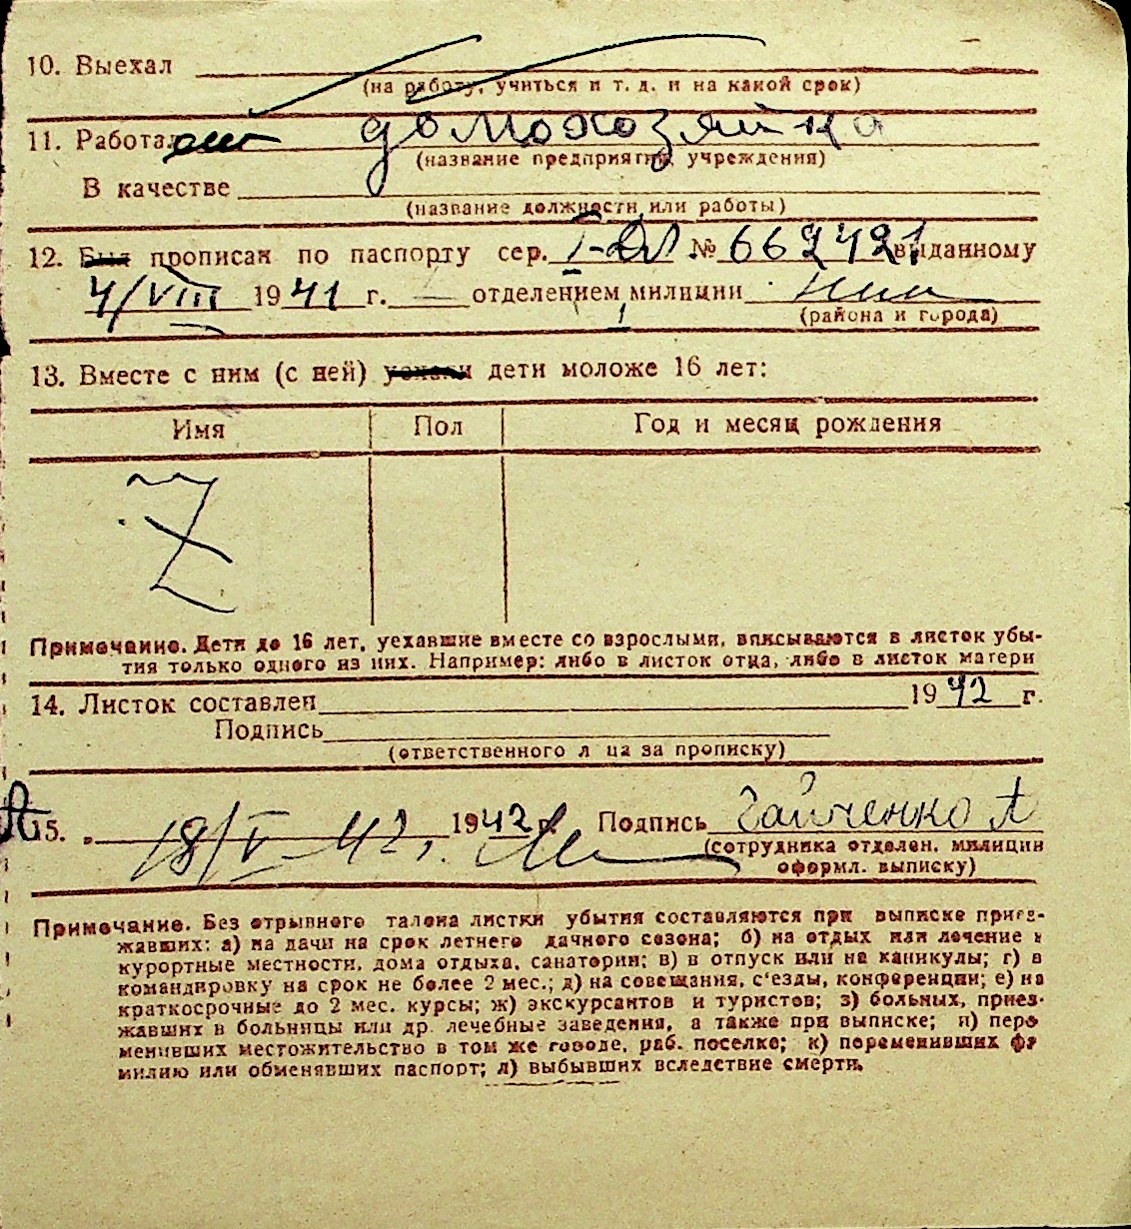 10. Выехал
(на работу, учиться и т. д. и на какой срок)
11. Работает домохозяйка
(название предприятия, учреждения)
В качестве
(название должности или работы)
12. Был прописан по паспорту сер. I-ДЛ № 662421 выданному
4/VIII 1941 г. — отделением милиции
(района и города)
13. Вместе с ним (с ней) уехали дети моложе 16 лет:
Имя Пол Год и месяц рождения
Z
Примечание. Дети до 16 лет, уехавшие вместе со взрослыми, вписываются в листок убы-
тия только одного из них. Например: либо в листок отца, либо в листок матери
14. Листок составлен 1942 г.
Подпись
(ответственного лица за прописку)
15. „ 18/V 42 г. 1942 г. Подпись Гайченко А
(сотрудника отделен. милиции
оформл. выписку)
Примечание. Без отрывного талона листки убытия составляются при выписке приез-
жавших: а) на дачи на срок летнего дачного сезона; б) на отдых или лечение в
курортные местности, дома отдыха, санатории; в) в отпуск или на каникулы; г) в
командировку на срок не более 2 мес.; д) на совещания, с'езды, конференции; е) на
краткосрочные до 2 мес. курсы; ж) экскурсантов и туристов; з) больных, приез-
жавших в больницы или др. лечебные заведения, а также при выписке; и) пере
менивших местожительство в том же городе, раб. поселке; к) переменивших фа
милию или обменявших паспорт; л) выбывших вследствие смерти.